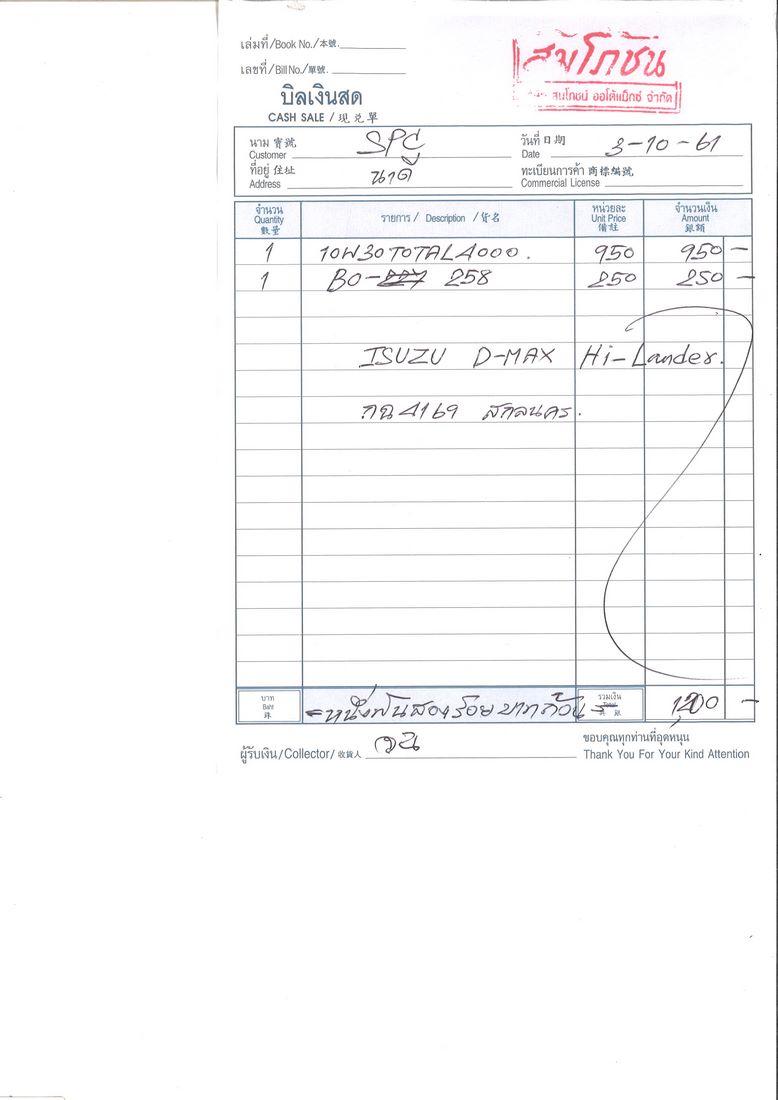 เล่มที่/Book No./本號.
เลขที่/Bill No./單號.
สมโภชน์
สมโภชน์ ออโต้แม็กซ์ จำกัด
บิลเงินสด
CASH SALE / 現兌單
นาม 寶號 Customer SPC วันที่ 日期 Date 3-10-61
ที่อยู่ 住址 Address นาดี ทะเบียนการค้า 商標編號 Commercial License
จำนวน Quantity 數量 รายการ / Description / 貨名 หน่วยละ Unit Price 備註 จำนวนเงิน Amount 銀額
1 10W30 TOTAL 4000. 950 950 —
1 BO-227 258 250 250 —
ISUZU D-MAX Hi-Lander.
กฉ 4169 สกลนคร.
บาท Baht 銖 =หนึ่งพันสองร้อยบาทถ้วน= รวมเงิน Total 共銀 1,200 —
ผู้รับเงิน/Collector/收貨人
ขอบคุณทุกท่านที่อุดหนุน
Thank You For Your Kind Attention